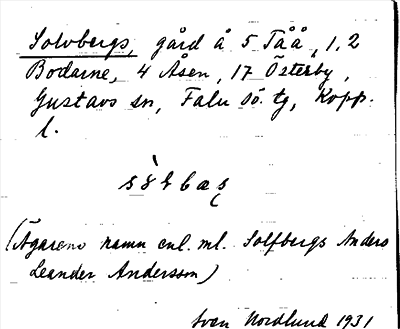 Solvbergs, gård å 5 Tåå, 1, 2
Bodarne, 4 Åsen, 17 Österby,
Gustavs sn, Falu Sö. tg, Kopp.
l.
(Ägarens namn enl. ml. Solfbergs Anders
Leander Andersson)
Sven Nordlund 1931